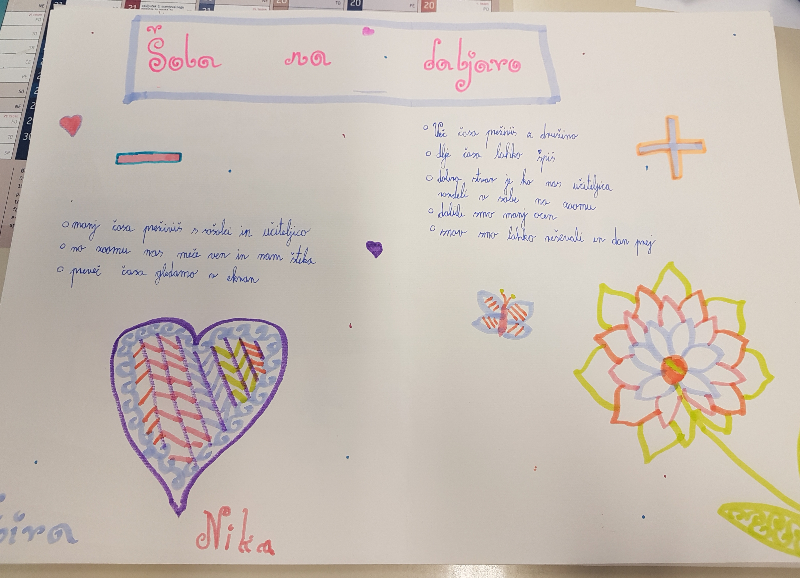 Šola na daljavo
manj časa preživiš s sošolci in učiteljico
na zoomu nas meče ven in nam šteka
preveč časa gledamo v ekran
Več časa preživiš z družino
dlje časa lahko spiš
dobra stran je ko nas učiteljica
razdeli v sobe na zoomu
dobili smo manj ocen
snov smo lahko reševali en dan prej
Nika